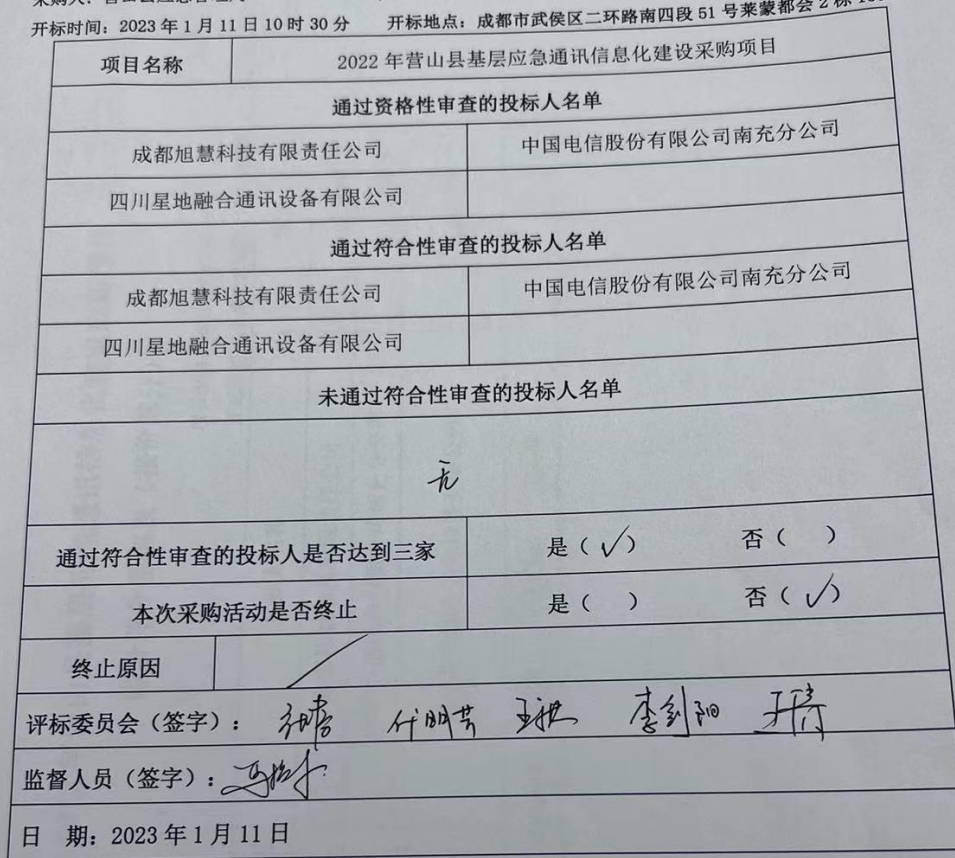 开标时间：2023 年 1 月 11 日 10 时 30 分 开标地点：成都市武侯区二环路南四段 51 号莱蒙都会 2 栋
项目名称 2022 年营山县基层应急通讯信息化建设采购项目
通过资格性审查的投标人名单
成都旭慧科技有限责任公司 中国电信股份有限公司南充分公司
四川星地融合通讯设备有限公司
通过符合性审查的投标人名单
成都旭慧科技有限责任公司 中国电信股份有限公司南充分公司
四川星地融合通讯设备有限公司
未通过符合性审查的投标人名单
无
通过符合性审查的投标人是否达到三家 是（✓） 否（ ）
本次采购活动是否终止 是（ ） 否（✓）
终止原因
评标委员会（签字）： 李剑阳
监督人员（签字）：
日 期：2023 年 1 月 11 日